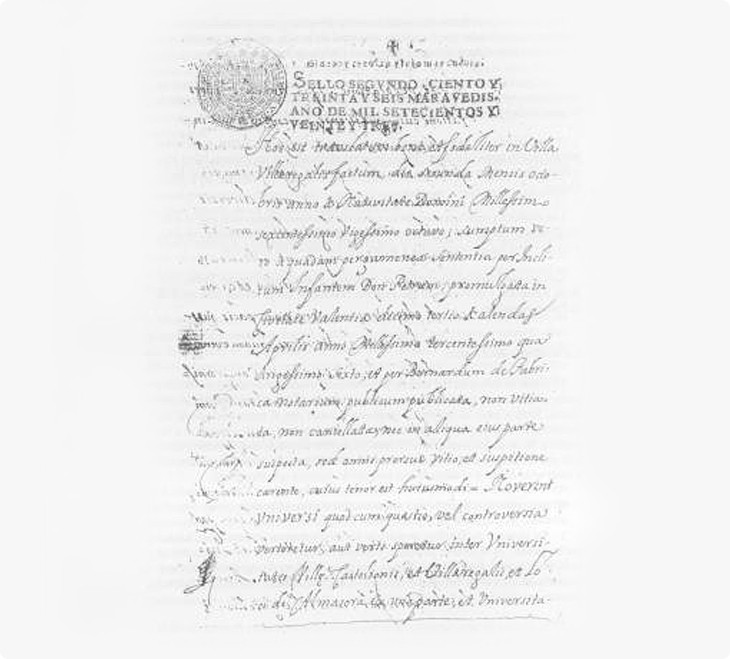 SELLO SEGVNDO, CIENTO Y
TREINTA Y SEIS MARAVEDIS,
AÑO DE MIL SETECIENTOS Y
VEINTE Y TRES.
Hoc est translatum bene, et fideliter in Villa
Villaregalis factum, die secunda Mensis octo-
bris anno à Nativitate Domini Millessimo
sexcentessimo Vigessimo octavo; sumptum ve-
ro à quadam pergamenea sententia per Incli-
tum Infantem Don Petrum; promulgata in
Civitate Valentiæ decimo tertio Kalendas
Aprilis anno Millessimo tercentessimo qua
dragessimo sexto, et per Bernardum de Fabri-
ca notarium publicum publicata, non vitia-
da, non cancellata, nec in aliqua eius parte
suspecta, sed omni prorsus vitio, et suspitione
carente, cuius tenor est huiusmodi = Noverint
Vniversi quod cum questio, vel controversia
verteretur, aut verti speretur, inter Vniversi-
tates Ville Castelionis, et Villaregalis, et Lo-
ci de Almaçora, ex una parte, et Universita-